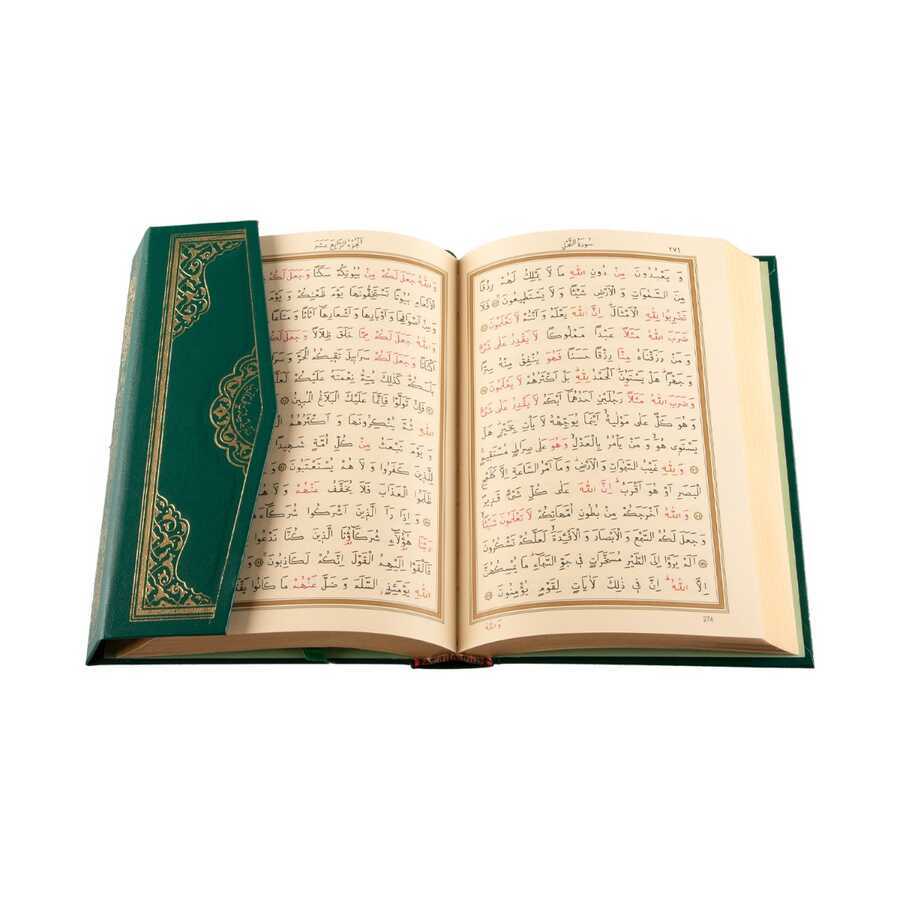 سُورَةُ النَّحْلِ ٢٧٤
وَ يَعْبُدُونَ مِنْ دُونِ اللّٰهِ مَا لَا يَمْلِكُ لَهُمْ رِزْقًا
مِنَ السَّمٰوَاتِ وَ الْاَرْضِ شَيْئًا وَ لَا يَسْتَطِيعُونَ ﴿٧٣﴾ فَلَا
تَضْرِبُوا لِلّٰهِ الْاَمْثَالَ اِنَّ اللّٰهَ يَعْلَمُ وَ اَنْتُمْ لَا تَعْلَمُونَ ﴿٧٤﴾
ضَرَبَ اللّٰهُ مَثَلًا عَبْدًا مَمْلُوكًا لَا يَقْدِرُ عَلٰى شَيْءٍ
وَ مَنْ رَزَقْنَاهُ مِنَّا رِزْقًا حَسَنًا فَهُوَ يُنْفِقُ مِنْهُ سِرًّا
وَ جَهْرًا هَلْ يَسْتَوُنَ اَلْحَمْدُ لِلّٰهِ بَلْ اَكْثَرُهُمْ لَا يَعْلَمُونَ ﴿٧٥﴾
وَ ضَرَبَ اللّٰهُ مَثَلًا رَجُلَيْنِ اَحَدُهُمَا اَبْكَمُ لَا يَقْدِرُ عَلٰى شَيْءٍ
وَ هُوَ كَلٌّ عَلٰى مَوْلٰيهُ اَيْنَمَا يُوَجِّهْهُ لَا يَأْتِ بِخَيْرٍ هَلْ
يَسْتَوِى هُوَ وَ مَنْ يَأْمُرُ بِالْعَدْلِ وَ هُوَ عَلٰى صِرَاطٍ مُسْتَقِيمٍ
﴿٧٦﴾ وَ لِلّٰهِ غَيْبُ السَّمٰوَاتِ وَ الْاَرْضِ وَ مَا اَمْرُ السَّاعَةِ اِلَّا كَلَمْحِ
الْبَصَرِ اَوْ هُوَ اَقْرَبُ اِنَّ اللّٰهَ عَلٰى كُلِّ شَيْءٍ قَدِيرٌ
﴿٧٧﴾ وَ اللّٰهُ اَخْرَجَكُمْ مِنْ بُطُونِ اُمَّهَاتِكُمْ لَا تَعْلَمُونَ شَيْئًا
وَ جَعَلَ لَكُمُ السَّمْعَ وَ الْاَبْصَارَ وَ الْاَفْئِدَةَ لَعَلَّكُمْ تَشْكُرُونَ
﴿٧٨﴾ اَلَمْ يَرَوْا اِلَى الطَّيْرِ مُسَخَّرَاتٍ فِي جَوِّ السَّمَاءِ مَا يُمْسِكُهُنَّ
اِلَّا اللّٰهُ اِنَّ فِي ذٰلِكَ لَاٰيَاتٍ لِقَوْمٍ يُؤْمِنُونَ ﴿٧٩﴾
وَ اللّٰهُ
274
اَلْجُزْءُ الرَّابِعُ عَشَرَ
وَ اللّٰهُ جَعَلَ لَكُمْ مِنْ بُيُوتِكُمْ سَكَنًا وَ جَعَلَ لَكُمْ
الْاَنْعَامِ بُيُوتًا تَسْتَخِفُّونَهَا يَوْمَ ظَعْنِكُمْ وَ يَوْمَ
وَ مِنْ اَصْوَافِهَا وَ اَوْبَارِهَا وَ اَشْعَارِهَا اَثَاثًا وَ مَتَاعًا
وَ اللّٰهُ جَعَلَ لَكُمْ مِمَّا خَلَقَ ظِلَالًا وَ جَعَلَ لَكُمْ
اَكْنَانًا وَ جَعَلَ لَكُمْ سَرَابِيلَ تَقِيكُمُ الْحَرَّ وَ سَرَابِيلَ
بَأْسَكُمْ كَذٰلِكَ يُتِمُّ نِعْمَتَهُ عَلَيْكُمْ لَعَلَّكُمْ
فَاِنْ تَوَلَّوْا فَاِنَّمَا عَلَيْكَ الْبَلَاغُ الْمُبِينُ
اللّٰهِ ثُمَّ يُنْكِرُونَهَا وَ اَكْثَرُهُمُ
وَ يَوْمَ نَبْعَثُ مِنْ كُلِّ اُمَّةٍ شَهِيدًا
لِلَّذِينَ كَفَرُوا وَ لَا هُمْ يُسْتَعْتَبُونَ
ظَلَمُوا الْعَذَابَ فَلَا يُخَفَّفُ عَنْهُمْ وَ لَا
وَ اِذَا رَاَ الَّذِينَ اَشْرَكُوا شُرَكَاءَهُمْ
رَبَّنَا هٰؤُلَاءِ شُرَكَاؤُنَا الَّذِينَ كُنَّا نَدْعُوا
فَاَلْقَوْا اِلَيْهِمُ الْقَوْلَ اِنَّكُمْ لَكَاذِبُونَ
اللّٰهِ يَوْمَئِذٍ السَّلَمَ وَ ضَلَّ عَنْهُمْ مَا كَانُوا